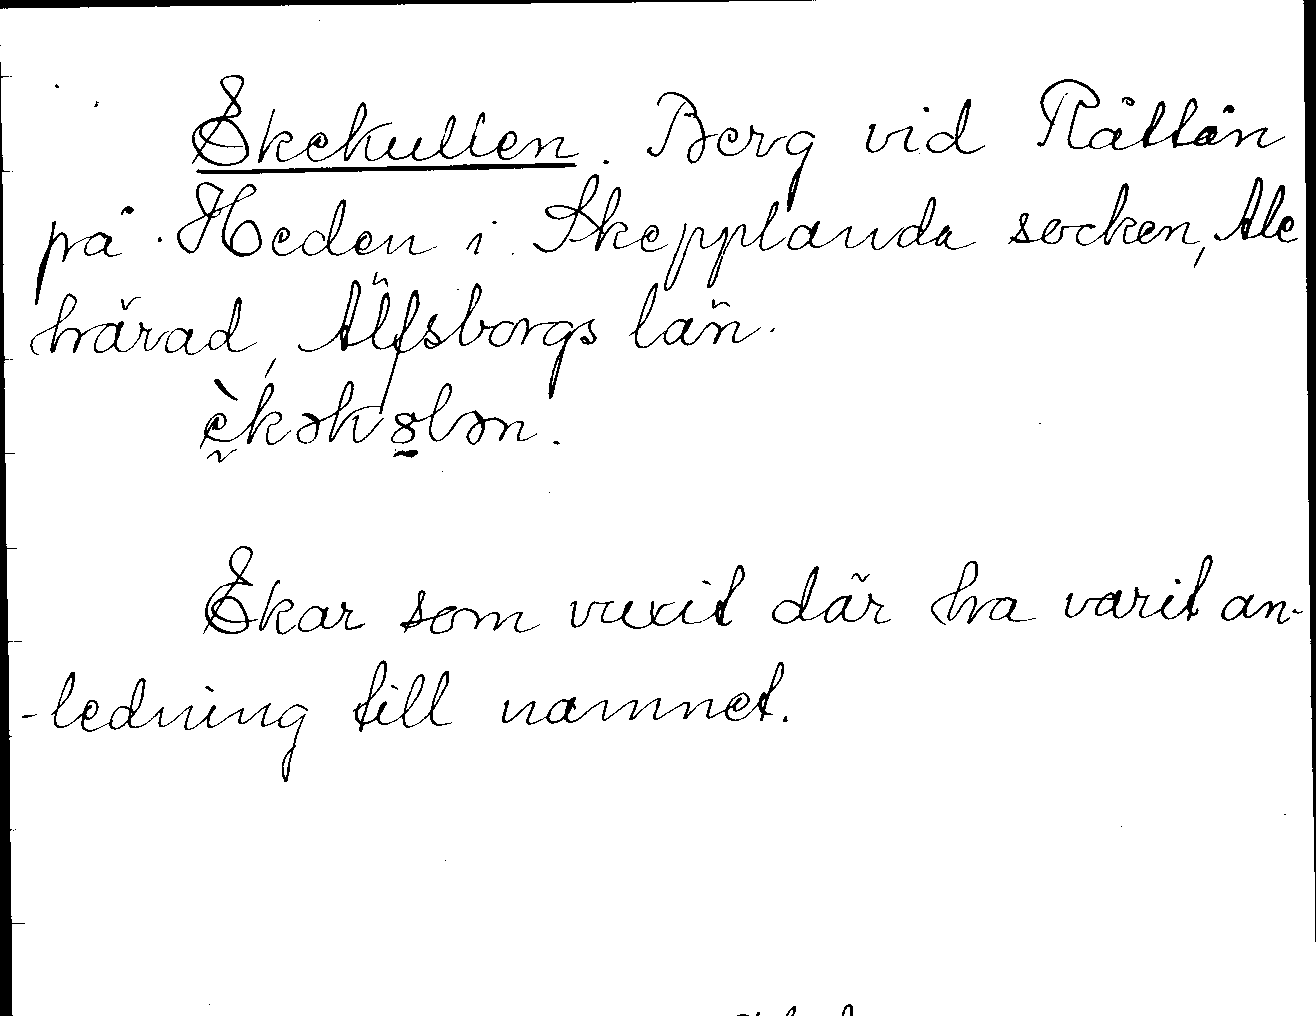 Ekekullen. Berg vid Råttån
på Heden i Skepplanda socken, Ale
härad, Älfsborgs län.
èkək8lən.
Ekar som vuxit där ha varit an-
-ledning till namnet.